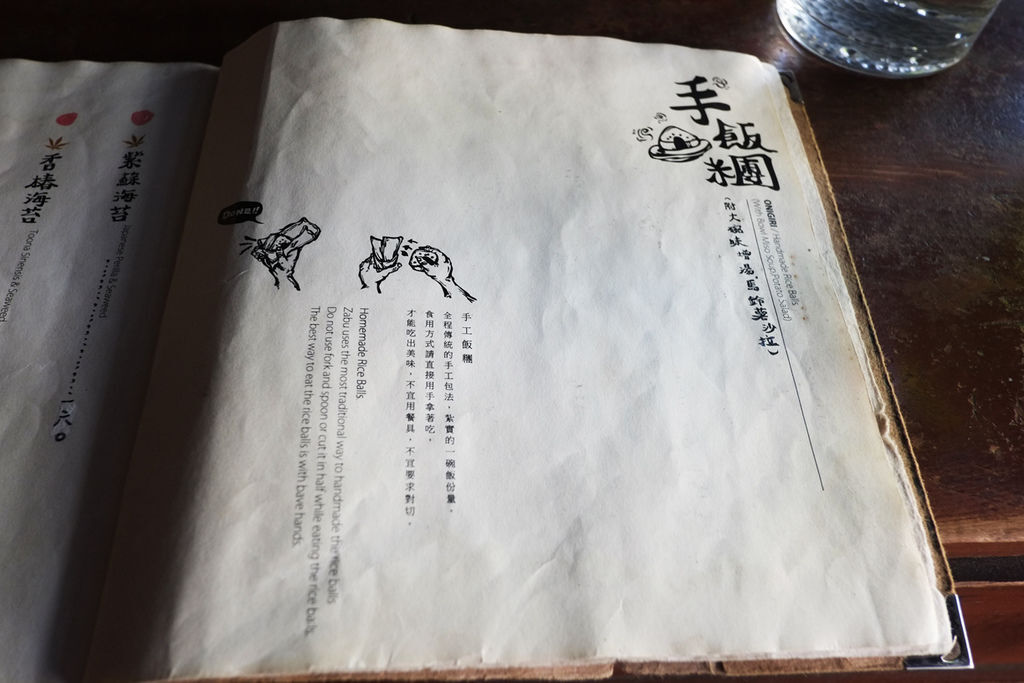 手飯糰
ONIGIRI / Handmade Rice Balls
(With Bowl Miso Soup,Potato Salad)
(附大碗味增湯.馬鈴薯沙拉)
手工飯糰
全程傳統的手工包法,紮實的一碗飯份量。
食用方式請直接用手拿著吃,
才能吃出美味,不宜用餐具,不宜要求對切。
Homemade Rice Balls
Zabu uses the most traditional way to handmade the rice balls.
Do not use fork and spoon or cut it in half while eating the rice balls.
The best way to eat the rice balls is with bave hands.
DONE!!
紫蘇海苔
Japanese Perilla & Seaweed
一八〇
香椿海苔
Toona Sinensis & Seaweed